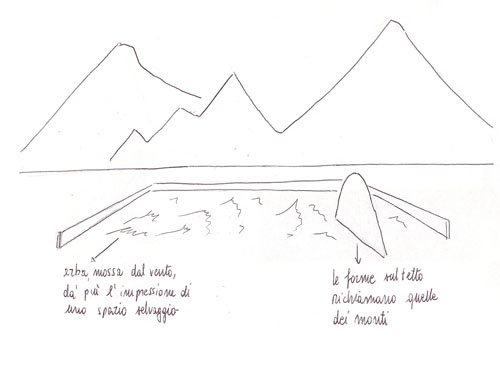 erba mossa dal vento,
da' più l'impressione di
uno spazio selvaggio
le forme sul tetto
richiamano quelle
dei monti